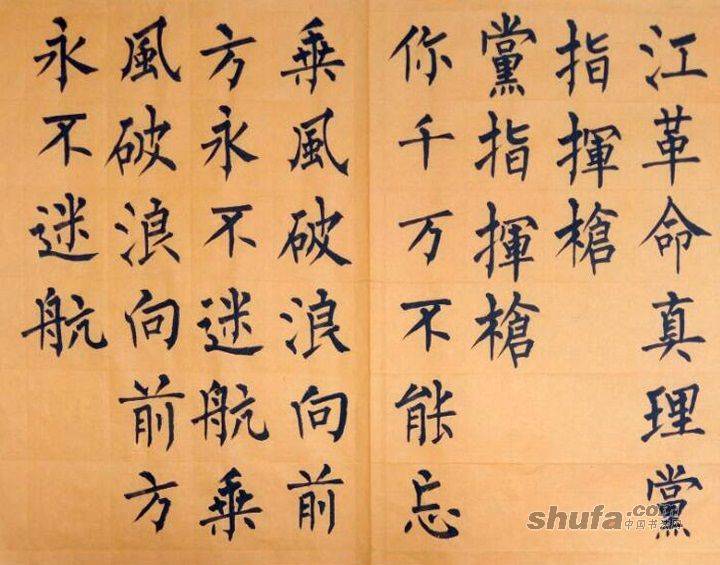 江革命真理黨
指揮槍
黨指揮槍
你千万不能忘
乘風破浪向前
方永不迷航乘
風破浪向前方
永不迷航
shufa.com
中国书法网